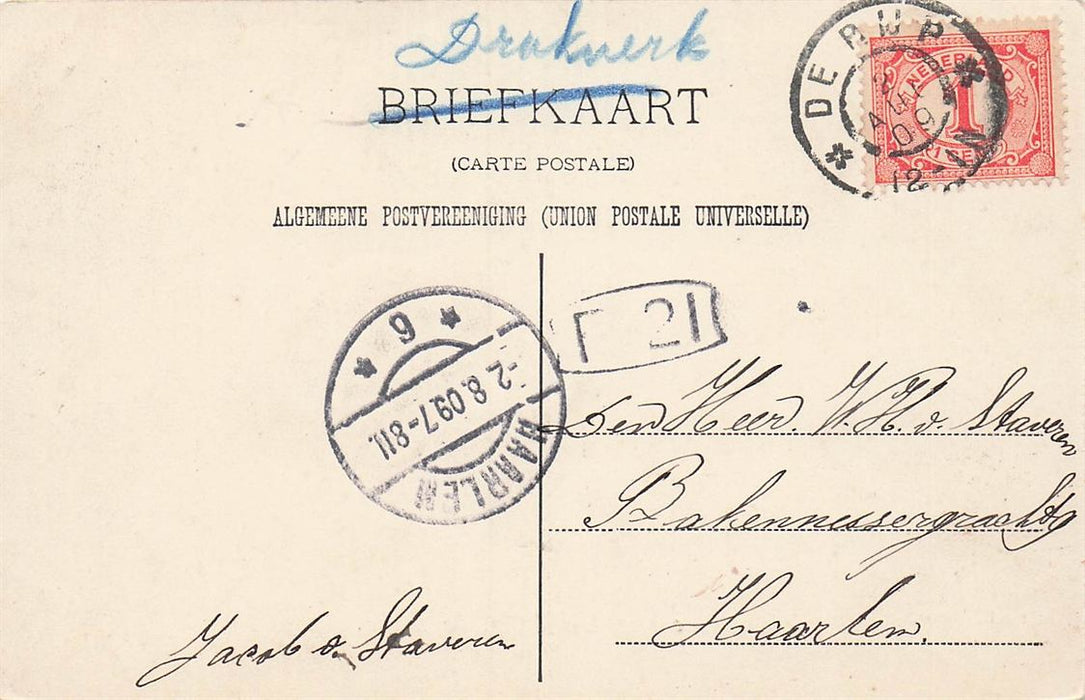 Drukwerk
BRIEFKAART
(CARTE POSTALE)
ALGEMEENE POSTVEREENIGING (UNION POSTALE UNIVERSELLE)
DE RIJP
2 AUG 09
12-1N
NEDERLAND
1
1 CENT
6
-2.8.09.7-8N.
HAARLEM
F 21
Den Heer W. H. v. Staveren
Bakennessergracht 69
Haarlem.
Jacob v. Staveren